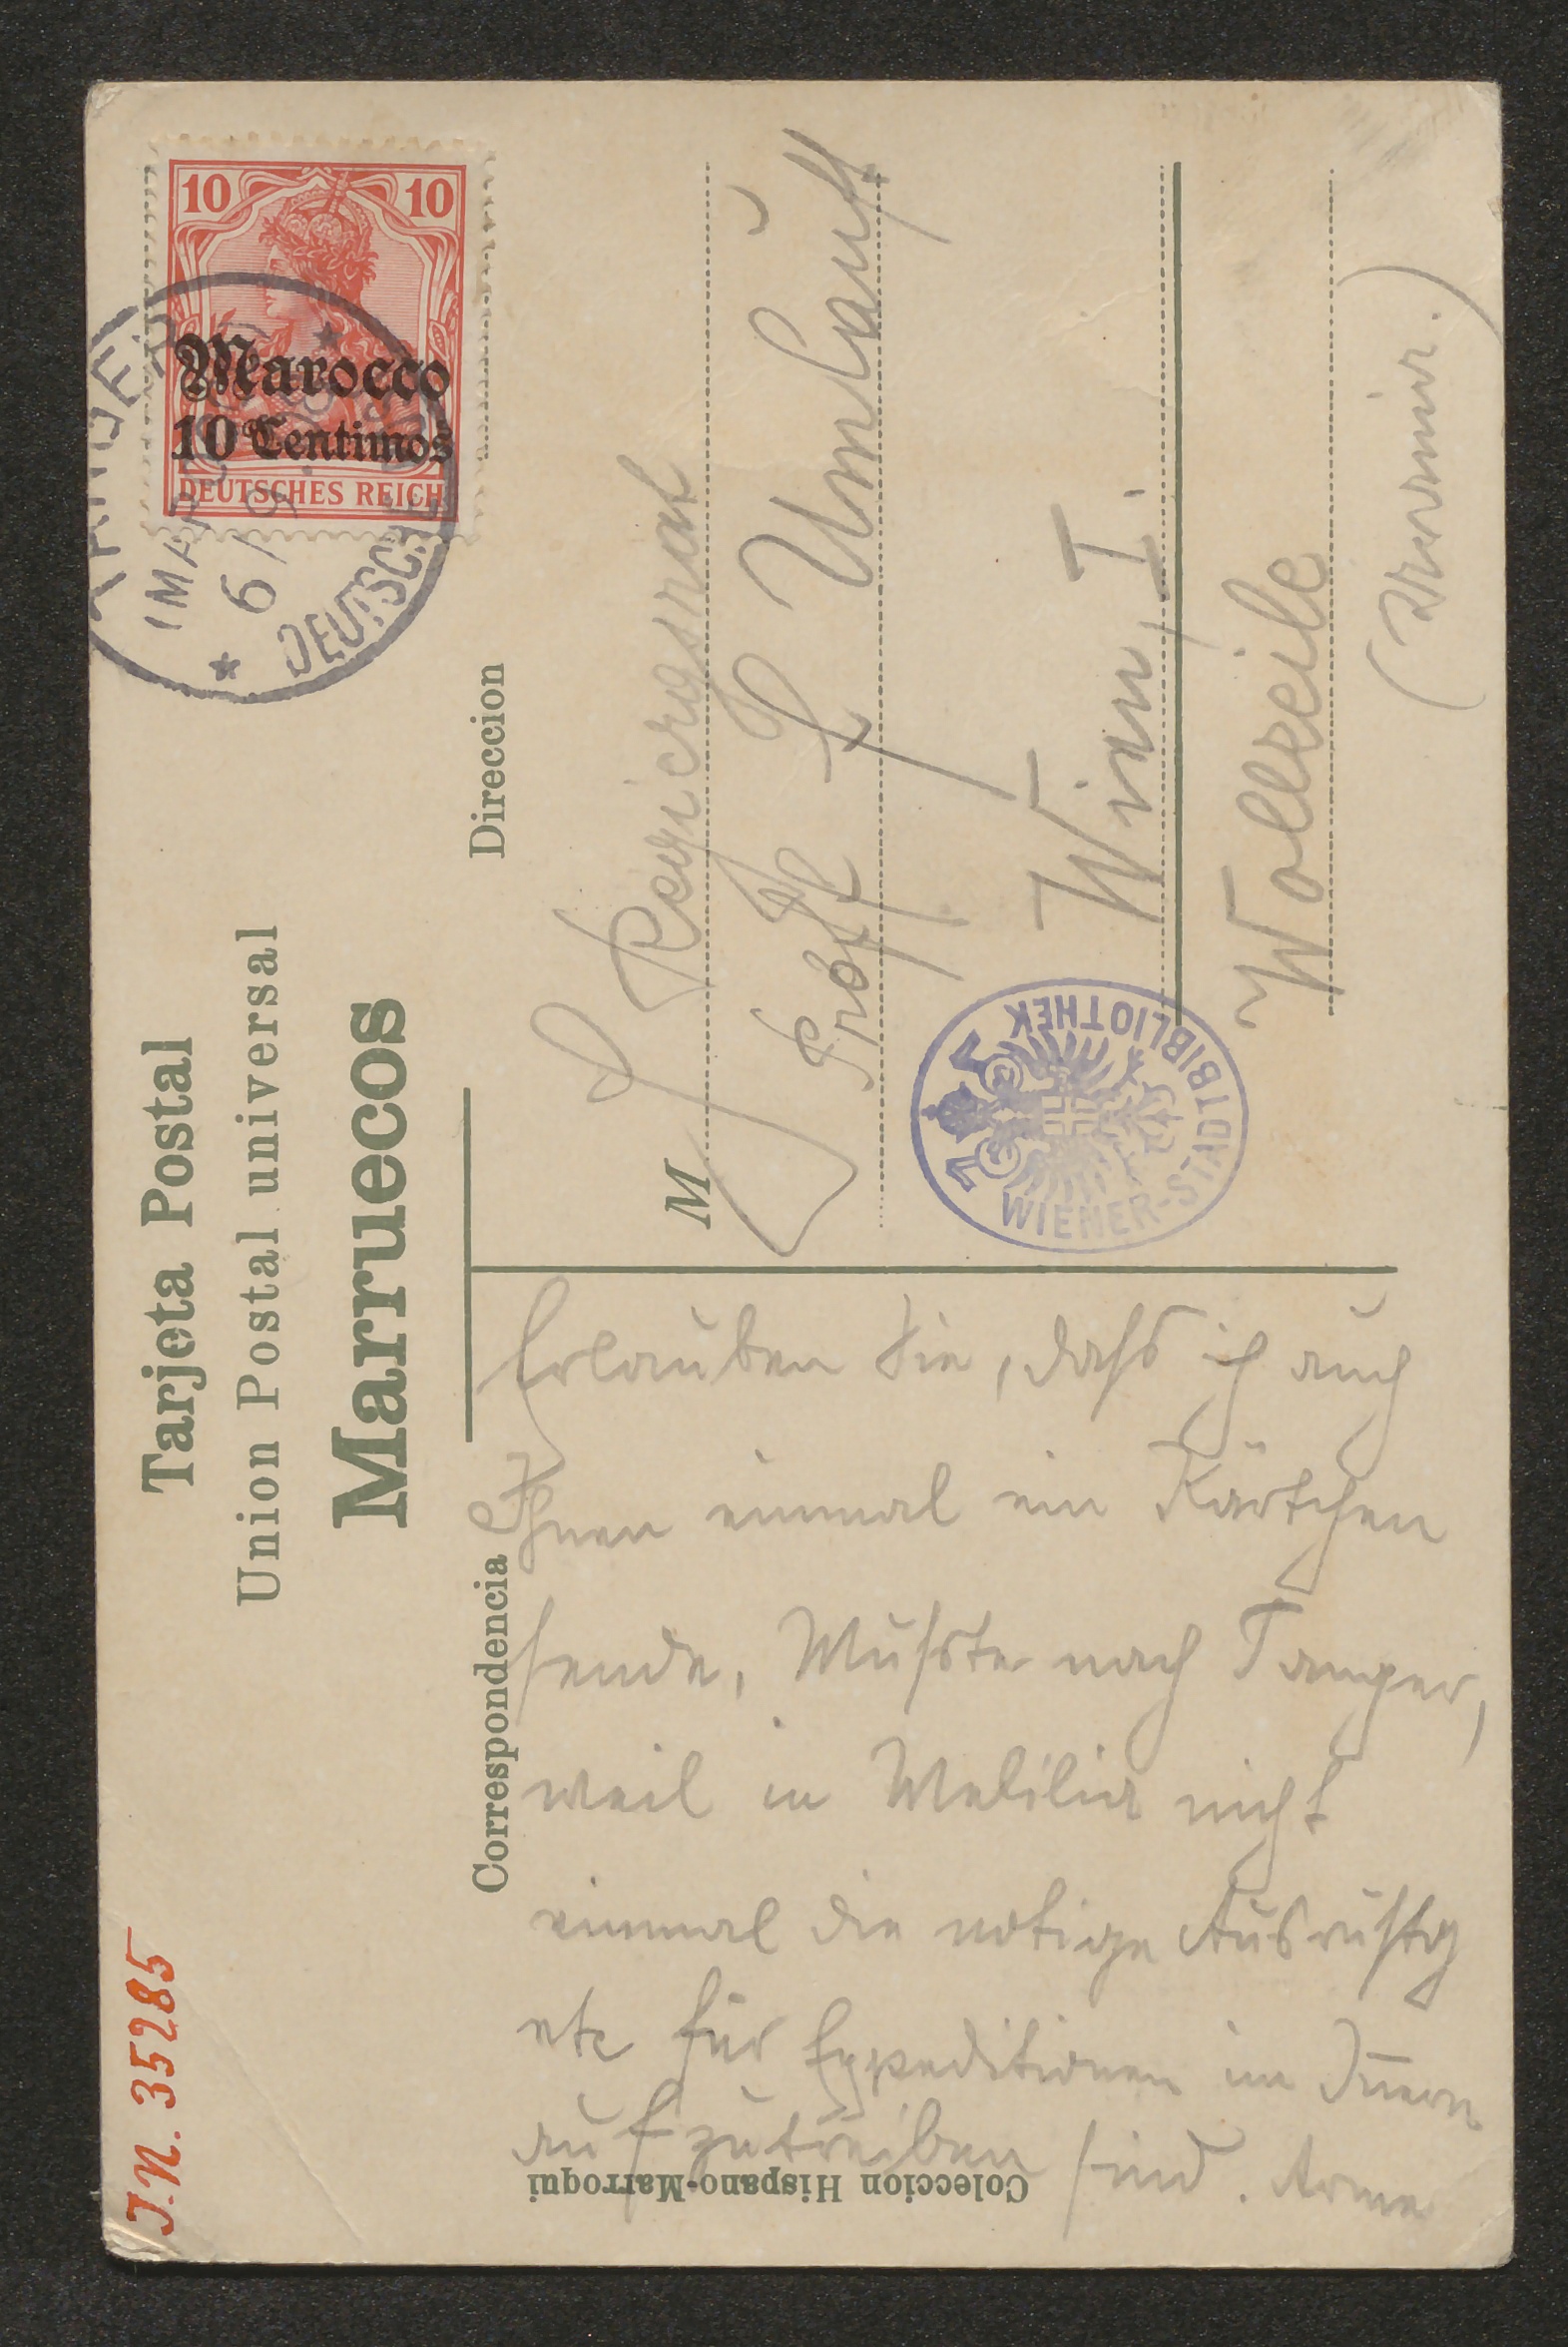 Tarjeta Postal
Union Postal universal
Marruecos
10 10
Marocco
10 Centimos
DEUTSCHES REICH
TANGER
(MAROCCO)
6/9
DEUTSCHE POST
Direccion
M
Regierogsrat
Prof F Umlauft
Wien, I.
Wollzeile
WIENER-STADTBIBLIOTHEK
Correspondencia
Erlauben Sie, dass ich auch
Ihnen einmal ein Kärtchen
sende. Musste nach Tanger,
weil in Melilla nicht
einmal die notige Ausrüstg
etc für Expeditionen im Innern
aufzutreiben sind. Arme
Coleccion Hispano-Marroqui
J.N. 35285